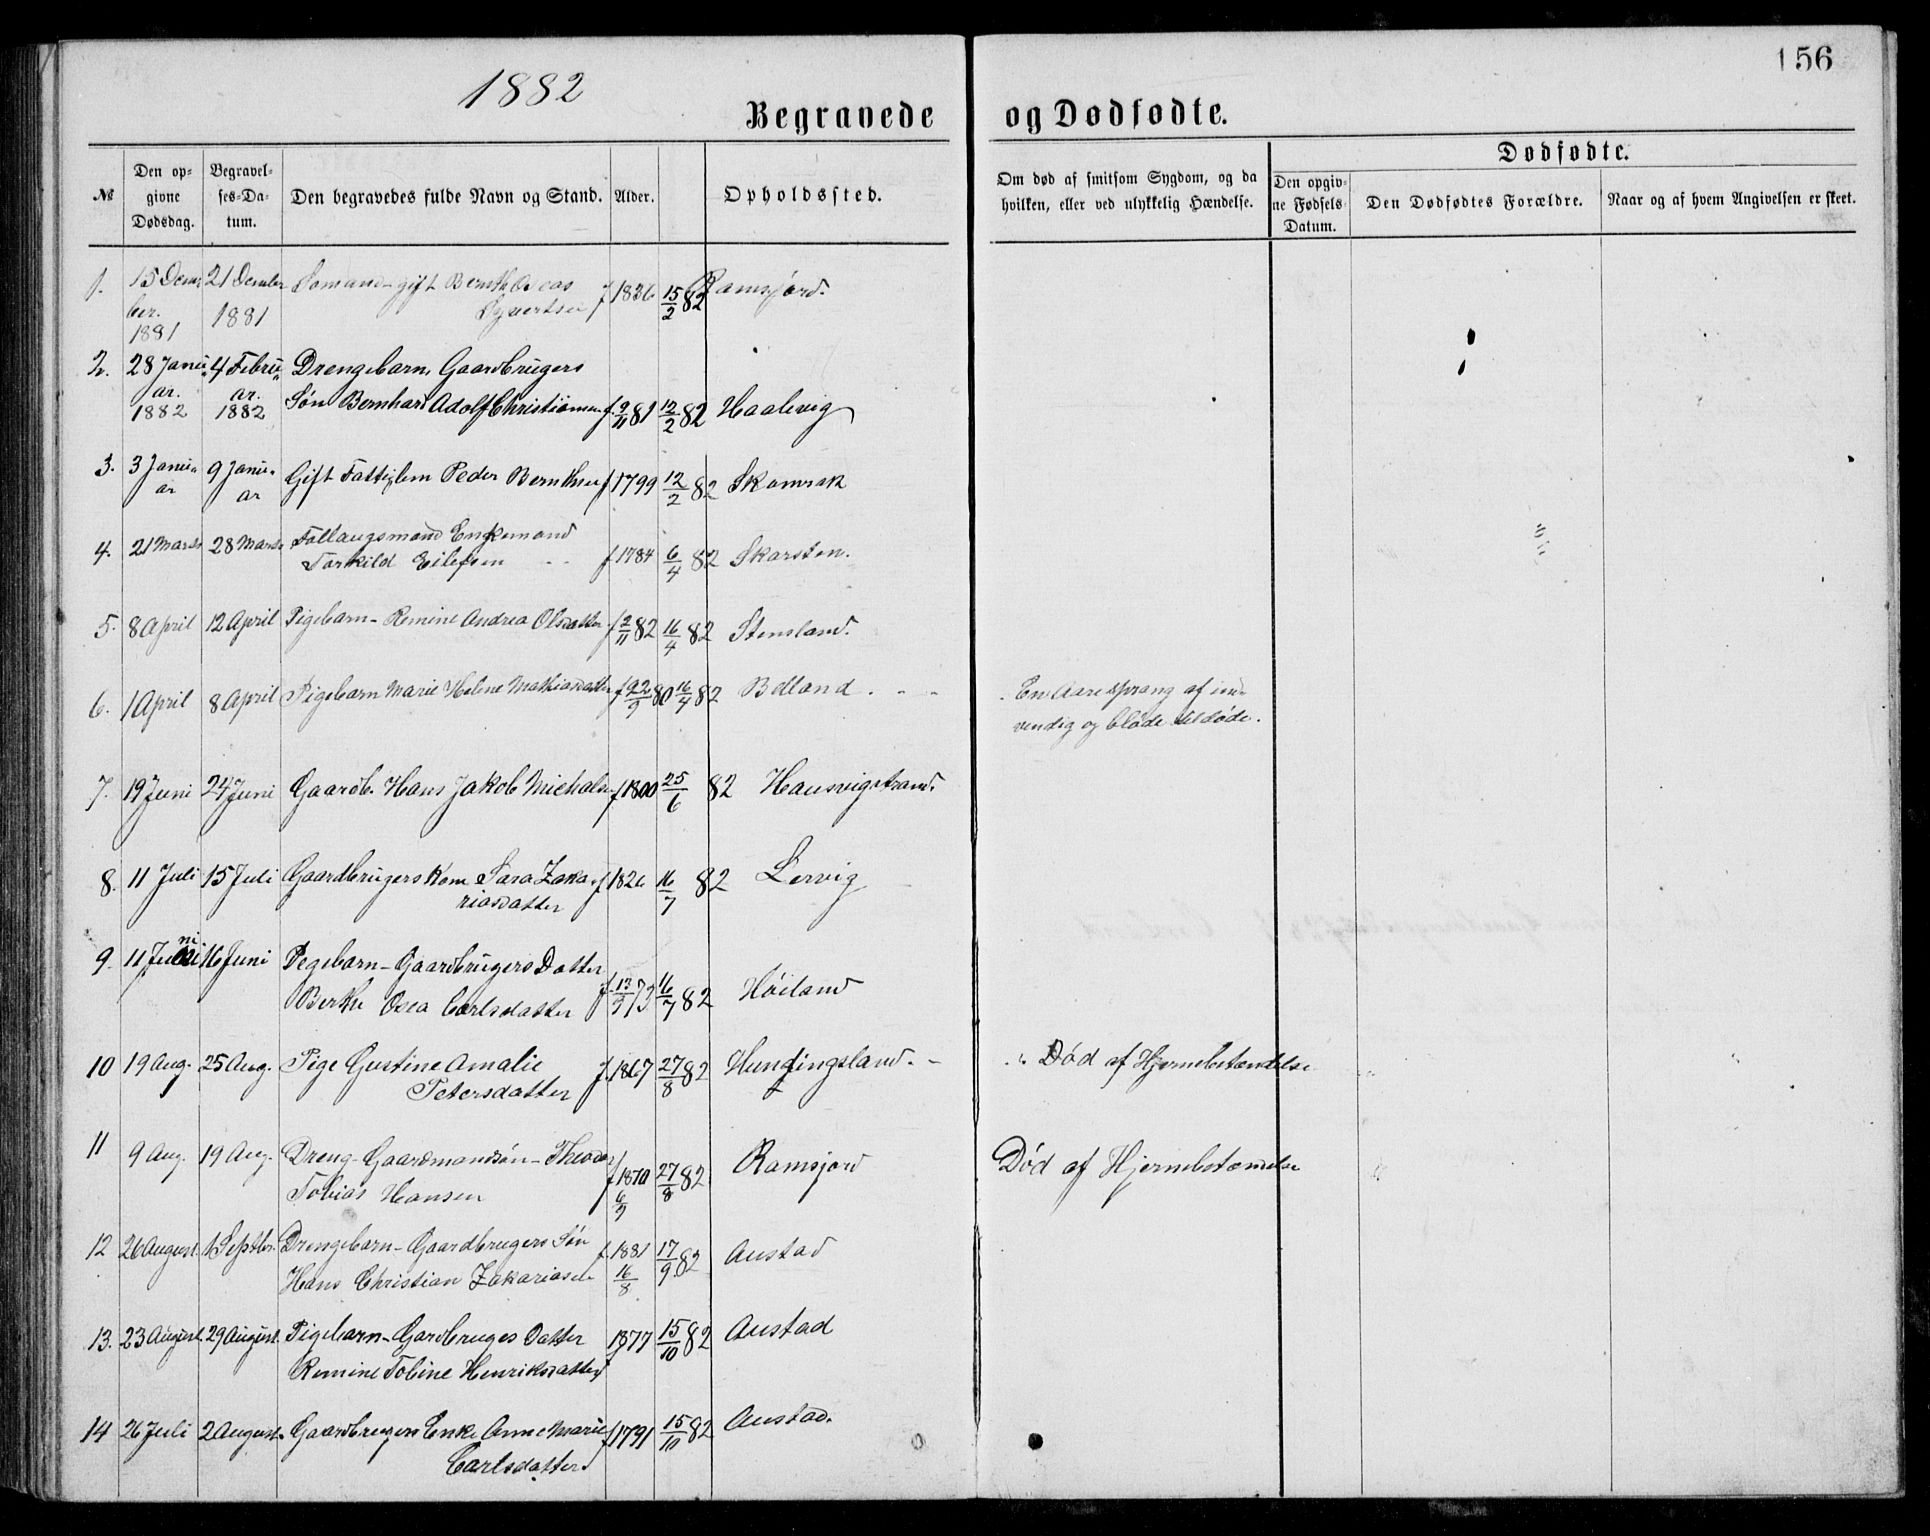 1882
156
Begravede og Dødfødte.
№
Den op-
givne
Dødsdag.
Begravel-
ses-Da-
tum.
Den begravedes fulde Navn og Stand.
Alder.
Opholdssted.
Om død af smitsom Sygdom, og da
hvilken, eller ved ulykkelig Hændelse.
Dødfødte.
Den opgiv-
ne Fødsels-
Datum.
Den Dødfødtes Forældre.
Naar og af hvem Angivelsen er skeet.
1. 15 Decem- 21 December Sømand - gift Bernth f 1836 15/2 82 Ramsfjord.
ber. 1881 Syvertsen
1881
2. 28 Janu- 4 Febru- Drengebarn, Gaardbrugers
ar. ar. Søn Bernhart Adolf Christiansen f. 9/11 81 12/2 82 Haalevig
1882 1882
3. 3 Janu- 9 Janu- Gift Fattiglem Peder Bernthsen f 1799 12/2 82 Skomrak
ar ar
4. 21 Marts 28 Marts Føllaugsmand Enkemand
Torkild Eilefsen f 1784 6/4 82 Skarsten.
5. 8 April 12 April Pigebarn - Remine Andrea Olsdatter f 2/11 82 16/4 82 Stensland.
6. 1 April 8 April Pigebarn Marie Helene Mathiasdatter f 22/9 80 16/4 82 Bdland. En Aare sprang af ind-
vendig og bløde til døde.
7. 19 Juni 24 Juni Gaardb. Hans Jakob Michalsen f 1800 25/6 82 Hausvigstrand.
8. 11 Juli 15 Juli Gaardbrugerskone Sara Zaka- f 1826 16/7 82 Lervig
riasdatter
9. 11 Juni 16 Juni Pegebarn - Gaardbrugers Datter
Berthe Osea Carlsdatter f. 13/9 73 16/7 82 Høiland
10 19 Aug. 25 Aug. Pige Gustine Amalie f. 1867 27/8 82 Hundingsland. Død af Hjernebetændelse
Petersdatter
11 9 Aug. 19 Aug. Dreng - Gaardmandsøn - Theodor f 1870 27/8 82 Ramsfjord Død af Hjernebetændelse
Tobias Hansen 6/9
12 26 August. 1 Septbr. Drengebarn - Gaardbrugers Søn f. 1881 17/9 82 Austad
Hans Christian Zakariasen 16/8
13. 23 August. 29 August. Pigebarn - Gardbruges Datter 1877 15/10 82 Austad
Remine Tobine Henriksdatter f
14 26 Juli 2 August. Gaardbrugers Enke Anne Marie f 1791 15/10 82 Austad.
Carlsdatter